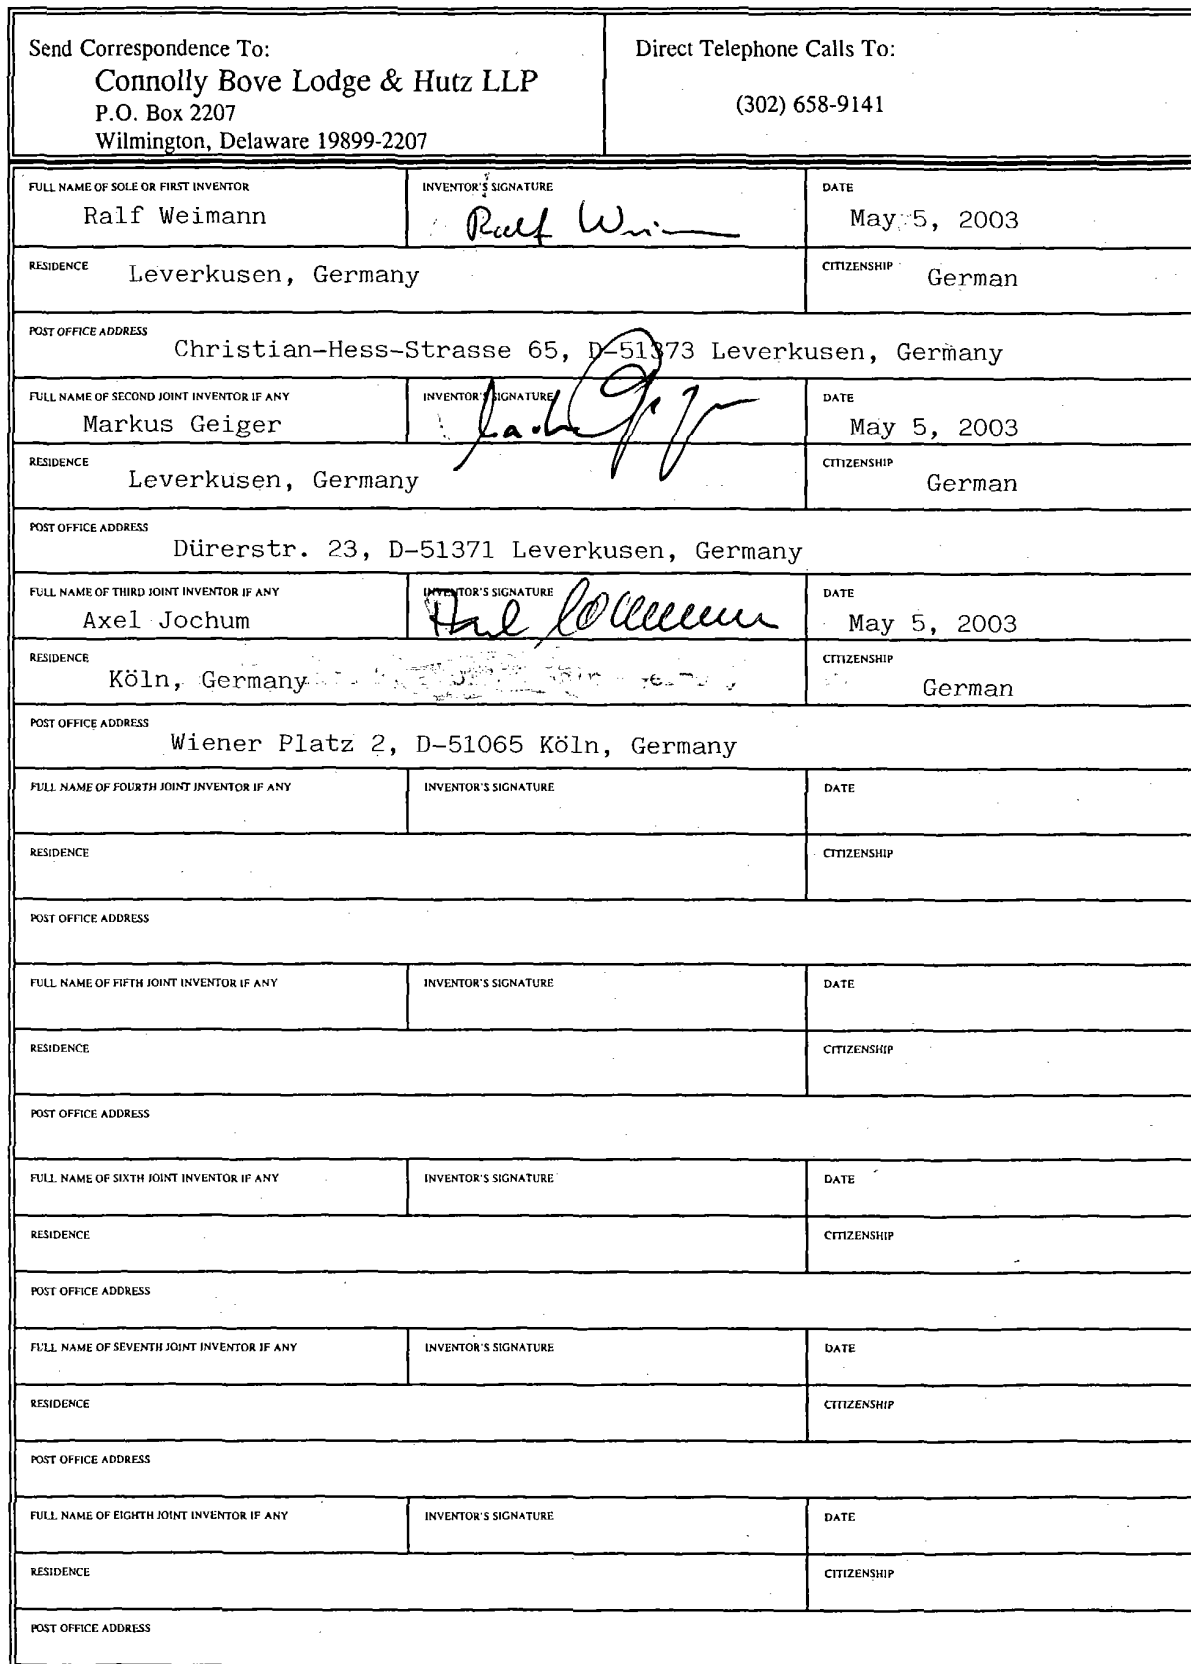 Send Correspondence To:
Connolly Bove Lodge & Hutz LLP
P.O. Box 2207
Wilmington, Delaware 19899-2207
Direct Telephone Calls To:
(302) 658-9141
FULL NAME OF SOLE OR FIRST INVENTOR INVENTOR'S SIGNATURE DATE
Ralf Weimann Ralf May 5, 2003
RESIDENCE Leverkusen, Germany CITIZENSHIP German
POST OFFICE ADDRESS
Christian-Hess-Strasse 65, D-51373 Leverkusen, Germany
FULL NAME OF SECOND JOINT INVENTOR IF ANY INVENTOR'S SIGNATURE DATE
Markus Geiger May 5, 2003
RESIDENCE CITIZENSHIP
Leverkusen, Germany German
POST OFFICE ADDRESS
Dürerstr. 23, D-51371 Leverkusen, Germany
FULL NAME OF THIRD JOINT INVENTOR IF ANY INVENTOR'S SIGNATURE DATE
Axel Jochum May 5, 2003
RESIDENCE CITIZENSHIP
Köln, Germany German
POST OFFICE ADDRESS
Wiener Platz 2, D-51065 Köln, Germany
FULL NAME OF FOURTH JOINT INVENTOR IF ANY INVENTOR'S SIGNATURE DATE
RESIDENCE CITIZENSHIP
POST OFFICE ADDRESS
FULL NAME OF FIFTH JOINT INVENTOR IF ANY INVENTOR'S SIGNATURE DATE
RESIDENCE CITIZENSHIP
POST OFFICE ADDRESS
FULL NAME OF SIXTH JOINT INVENTOR IF ANY INVENTOR'S SIGNATURE DATE
RESIDENCE CITIZENSHIP
POST OFFICE ADDRESS
FULL NAME OF SEVENTH JOINT INVENTOR IF ANY INVENTOR'S SIGNATURE DATE
RESIDENCE CITIZENSHIP
POST OFFICE ADDRESS
FULL NAME OF EIGHTH JOINT INVENTOR IF ANY INVENTOR'S SIGNATURE DATE
RESIDENCE CITIZENSHIP
POST OFFICE ADDRESS